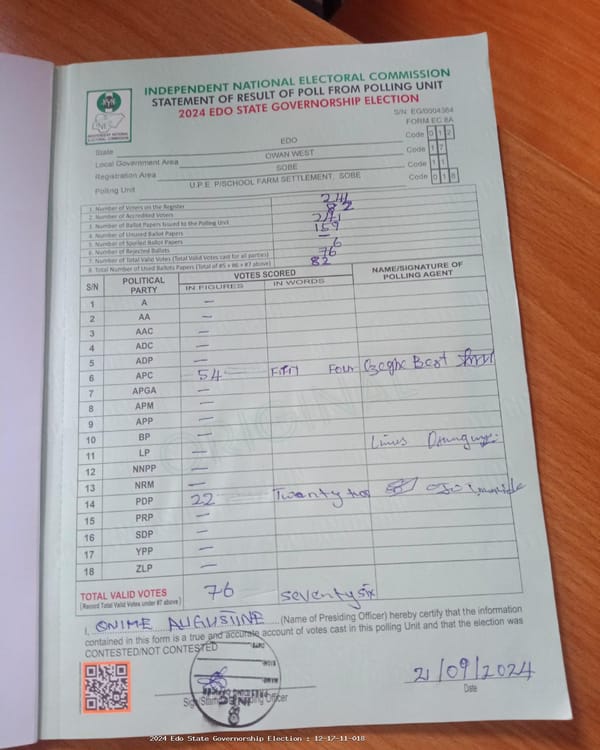 INDEPENDENT NATIONAL ELECTORAL COMMISSION
STATEMENT OF RESULT OF POLL FROM POLLING UNIT
2024 EDO STATE GOVERNORSHIP ELECTION
INDEPENDENT NATIONAL ELECTORAL COMMISSION
S/N: EG/0004384
FORM EC 8A
State EDO Code 0 1 2
Local Government Area OWAN WEST Code 1 7
Registration Area SOBE Code 1 1
Polling Unit U.P.E. P/SCHOOL FARM SETTLEMENT, SOBE Code 0 1 8
1. Number of Voters on the Register 241
2. Number of Accredited Voters 82
3. Number of Ballot Papers Issued to the Polling Unit 241
4. Number of Unused Ballot Papers 159
5. Number of Spoiled Ballot Papers —
6. Number of Rejected Ballots 6
7. Number of Total Valid Votes (Total Valid Votes cast for all parties) 76
8. Total Number of Used Ballots Papers (Total of #5 + #6 + #7 above) 82
S/N POLITICAL PARTY VOTES SCORED NAME/SIGNATURE OF POLLING AGENT
IN FIGURES IN WORDS
1 A —
2 AA —
3 AAC —
4 ADC —
5 ADP —
6 APC 54 Fifty Four Best
7 APGA —
8 APM —
9 APP —
10 BP —
11 LP —
12 NNPP —
13 NRM —
14 PDP 22 Twenty two
15 PRP —
16 SDP —
17 YPP —
18 ZLP —
TOTAL VALID VOTES 76 Seventy six
[Record Total Valid Votes under #7 above]
I, ONIME AUGUSTINE (Name of Presiding Officer) hereby certify that the information
contained in this form is a true and accurate account of votes cast in this polling Unit and that the election was
CONTESTED/NOT CONTESTED
21/09/2024
Sign/Stamp Officer Date
2024 Edo State Governorship Election : 12-17-11-018